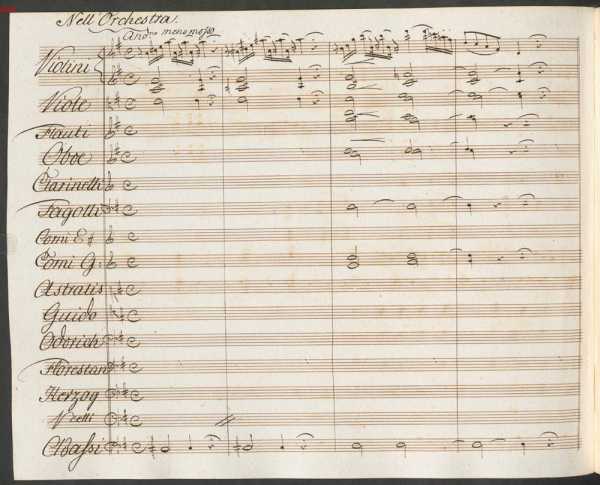 Nell'Orchestra.
And.no meno mosso
Violini
Viole
Flauti
Oboe
Clarinetti
Fagotti
Corni E♯
Corni G.
Astralis
Guido
Odorich
Florestan
Herzog
V.celli
C Bassi